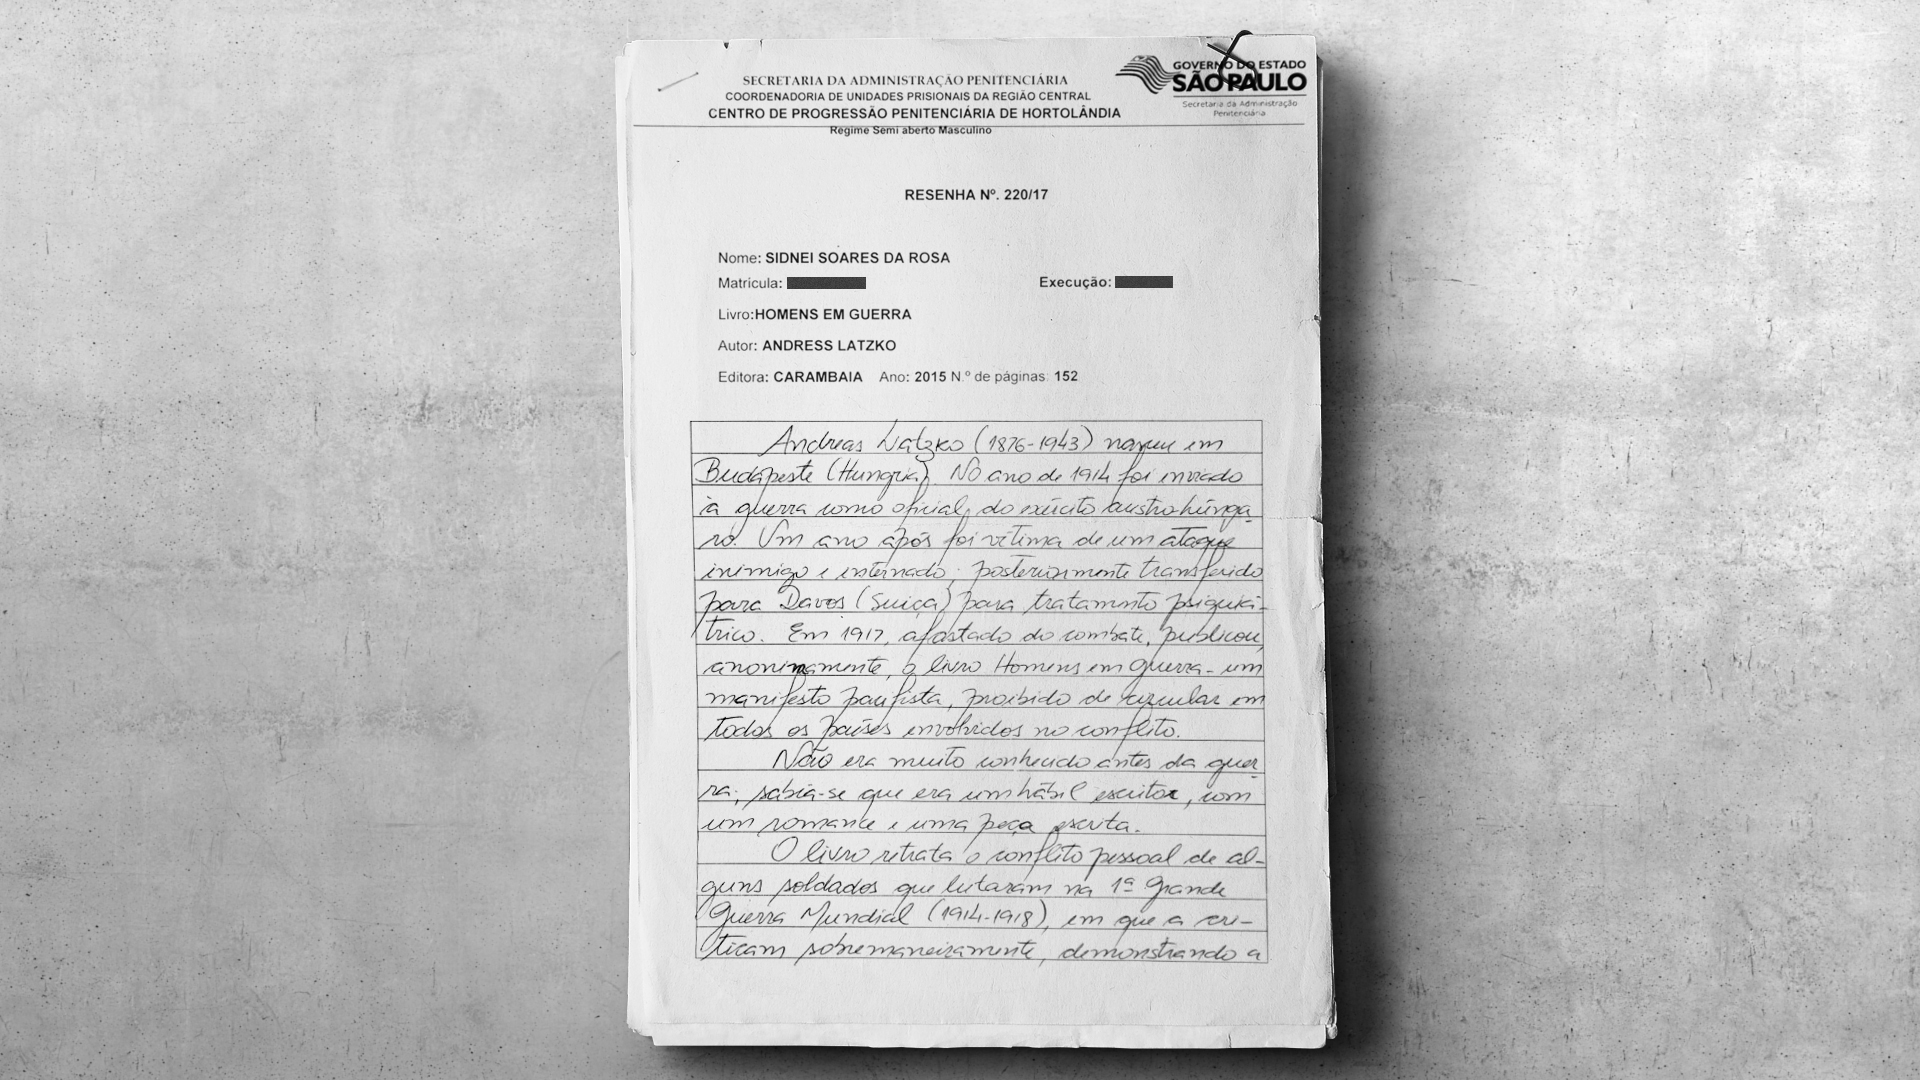 SECRETARIA DA ADMINISTRAÇÃO PENITENCIÁRIA
COORDENADORIA DE UNIDADES PRISIONAIS DA REGIÃO CENTRAL
CENTRO DE PROGRESSÃO PENITENCIÁRIA DE HORTOLÂNDIA
Regime Semi aberto Masculino
GOVERNO DO ESTADO
SÃO PAULO
Secretaria da Administração
Penitenciária
RESENHA Nº. 220/17
Nome: SIDNEI SOARES DA ROSA
Matrícula:
Execução:
Livro:HOMENS EM GUERRA
Autor: ANDRESS LATZKO
Editora: CARAMBAIA Ano: 2015 N.º de páginas: 152
Andreas Latzko (1876-1943) nasceu em
Budapeste (Hungria). No ano de 1914 foi enviado
à guerra como oficial, do exército austro-húnga-
ro. Um ano após foi vítima de um ataque
inimigo e internado; posteriormente transferido
para Davos (Suiça) para tratamento psiquiá-
trico. Em 1917, afastado do combate, publicou,
anonimamente, o livro Homens em guerra - um
manifesto pacifista, proibido de circular em
todos os países envolvidos no conflito.
Não era muito conhecido antes da guer-
ra; sabia-se que era um hábil escritor, com
um romance e uma peça escrita.
O livro retrata o conflito pessoal de al-
guns soldados que lutaram na 1ª Grande
Guerra Mundial (1914-1918), em que a cri-
ticam sobremaneiramente, demonstrando a